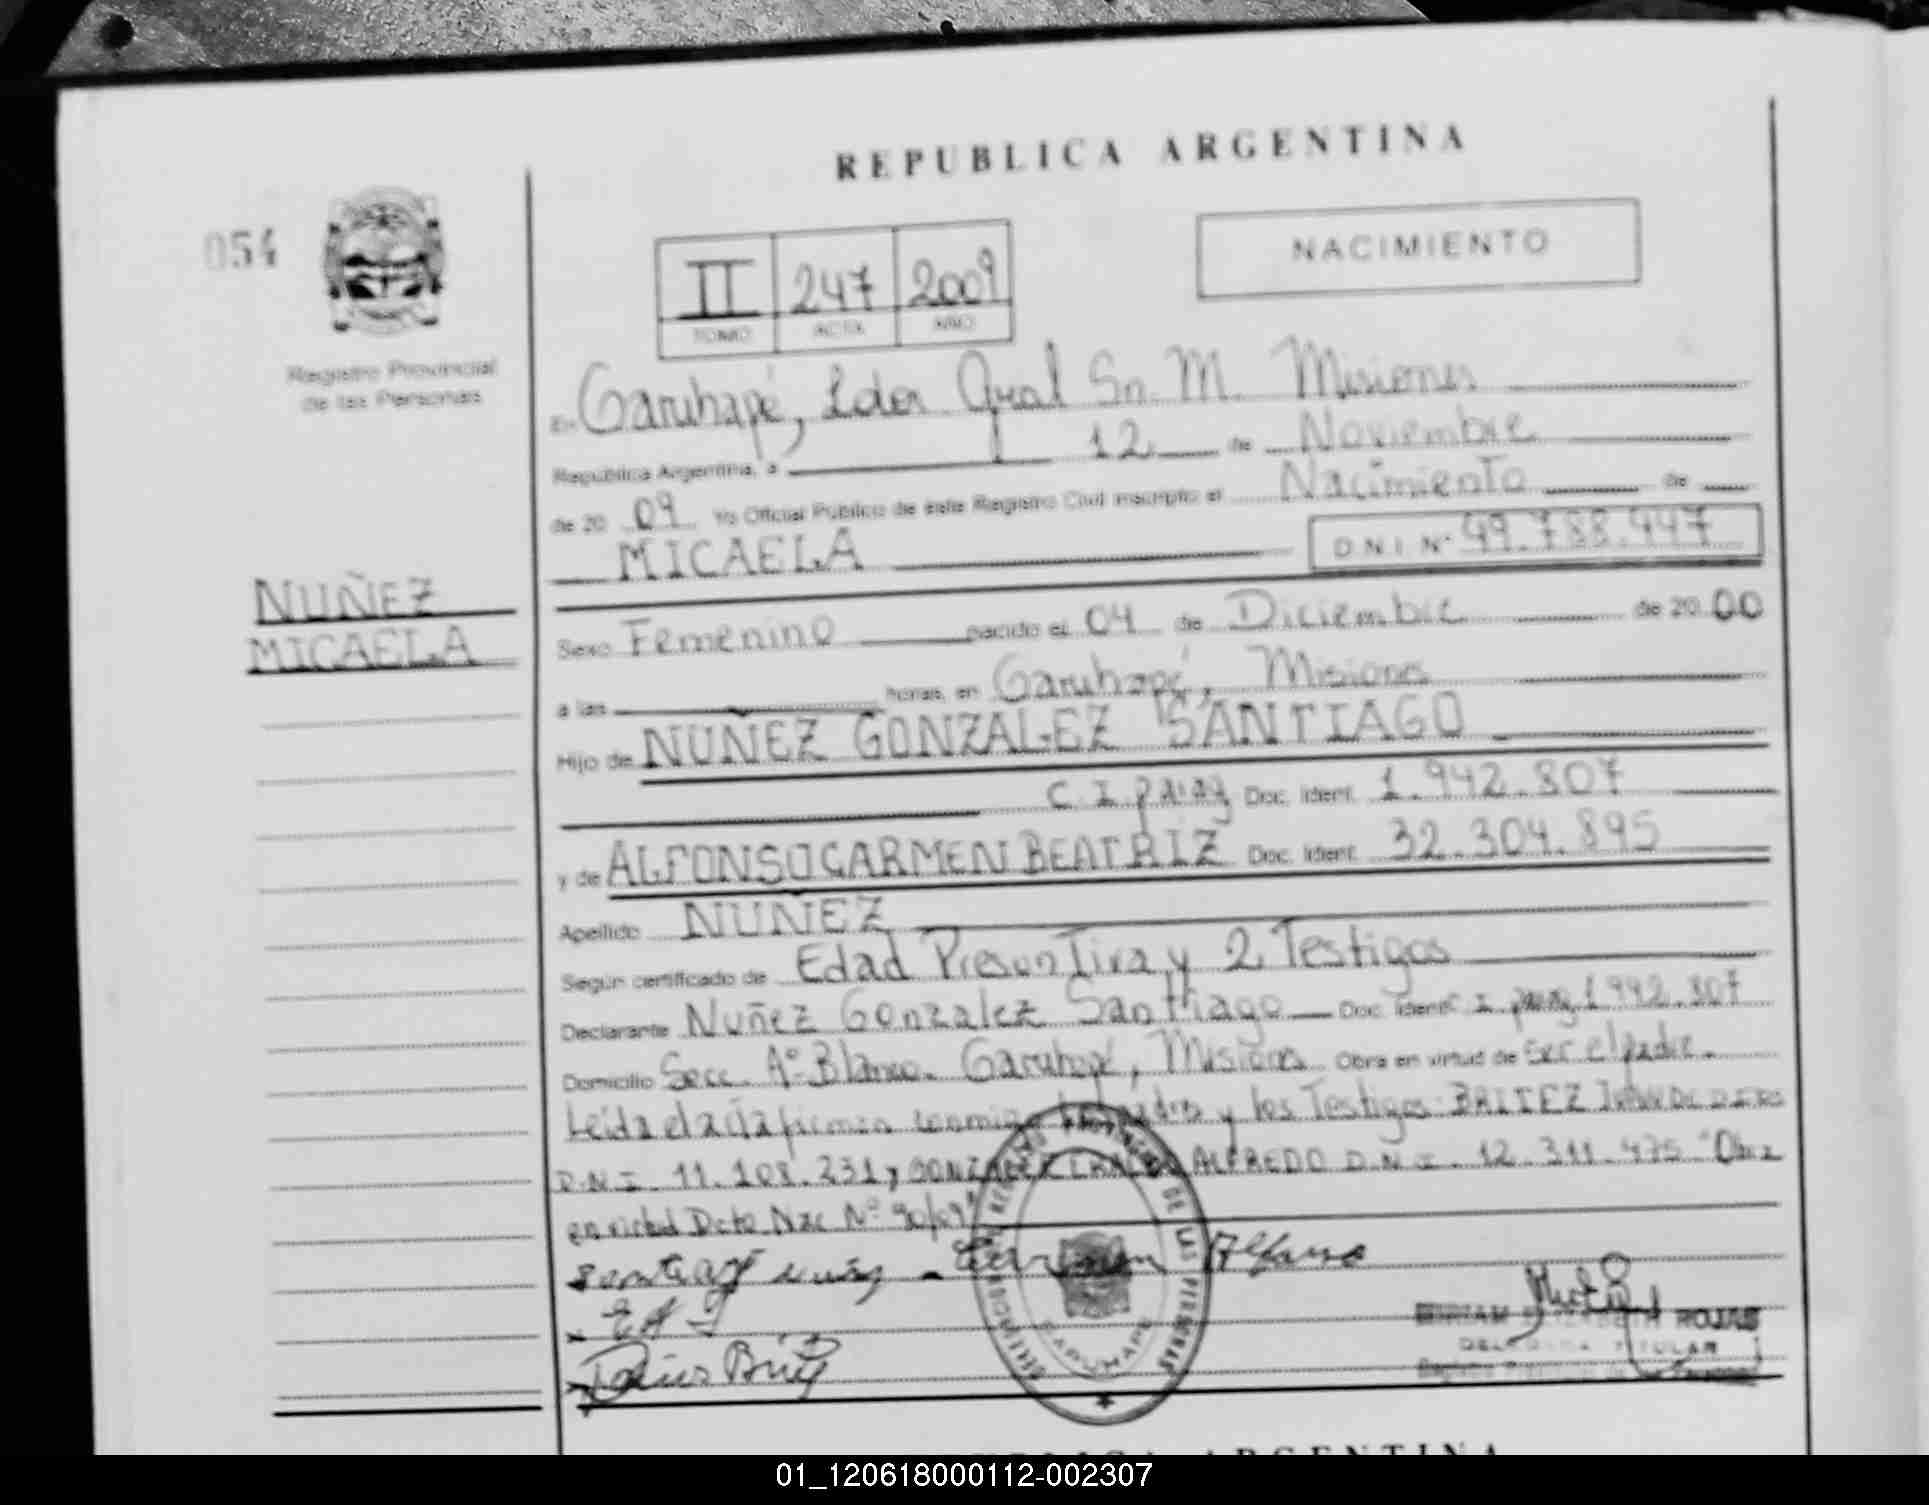 REPUBLICA ARGENTINA
054
NACIMIENTO
II 247 2009
TOMO ACTA AÑO
Registro Provincial
de las Personas
En Garuhapé, Lder Gral Sn. M. Misiones
República Argentina, a 12 de Noviembre
de 20 09 Yo Oficial Público de éste Registro Civil inscripto el Nacimiento de
MICAELA D.N.I. Nº 49.788.447
NUÑEZ
MICAELA
Sexo Femenino nacido el 04 de Diciembre de 20 00
a las horas, en Garuhapé, Misiones
Hijo de NUÑEZ GONZALEZ SANTIAGO
C.I. parag Doc. Ident. 1.942.807
y de ALFONSO CARMEN BEATRIZ Doc. Ident. 32.304.895
Apellido NUÑEZ
Según certificado de Edad Presuntiva y 2 Testigos
Declarante Nuñez Gonzalez Santiago Doc. Ident. C.I parag 1942.807
Domicilio Secc. Aº Blanco. Garuhapé, Misiones Obra en virtud de ser el padre.
Leída el acta firman conmigo y los Testigos BRITEZ
D.N.I. 11.108.231 y GONZALEZ ALFREDO D.N.I. 12.311.475 "Obra
en virtud Dcto Nac Nº 90/09"
Carmen Alfonso
REGISTRO PROVINCIAL DE LAS PERSONAS
GARUHAPE
MIRIAM ELIZABETH ROJAS
DELEGADA TITULAR
Registro Provincial de las Personas
REPUBLICA ARGENTINA
01_120618000112-002307